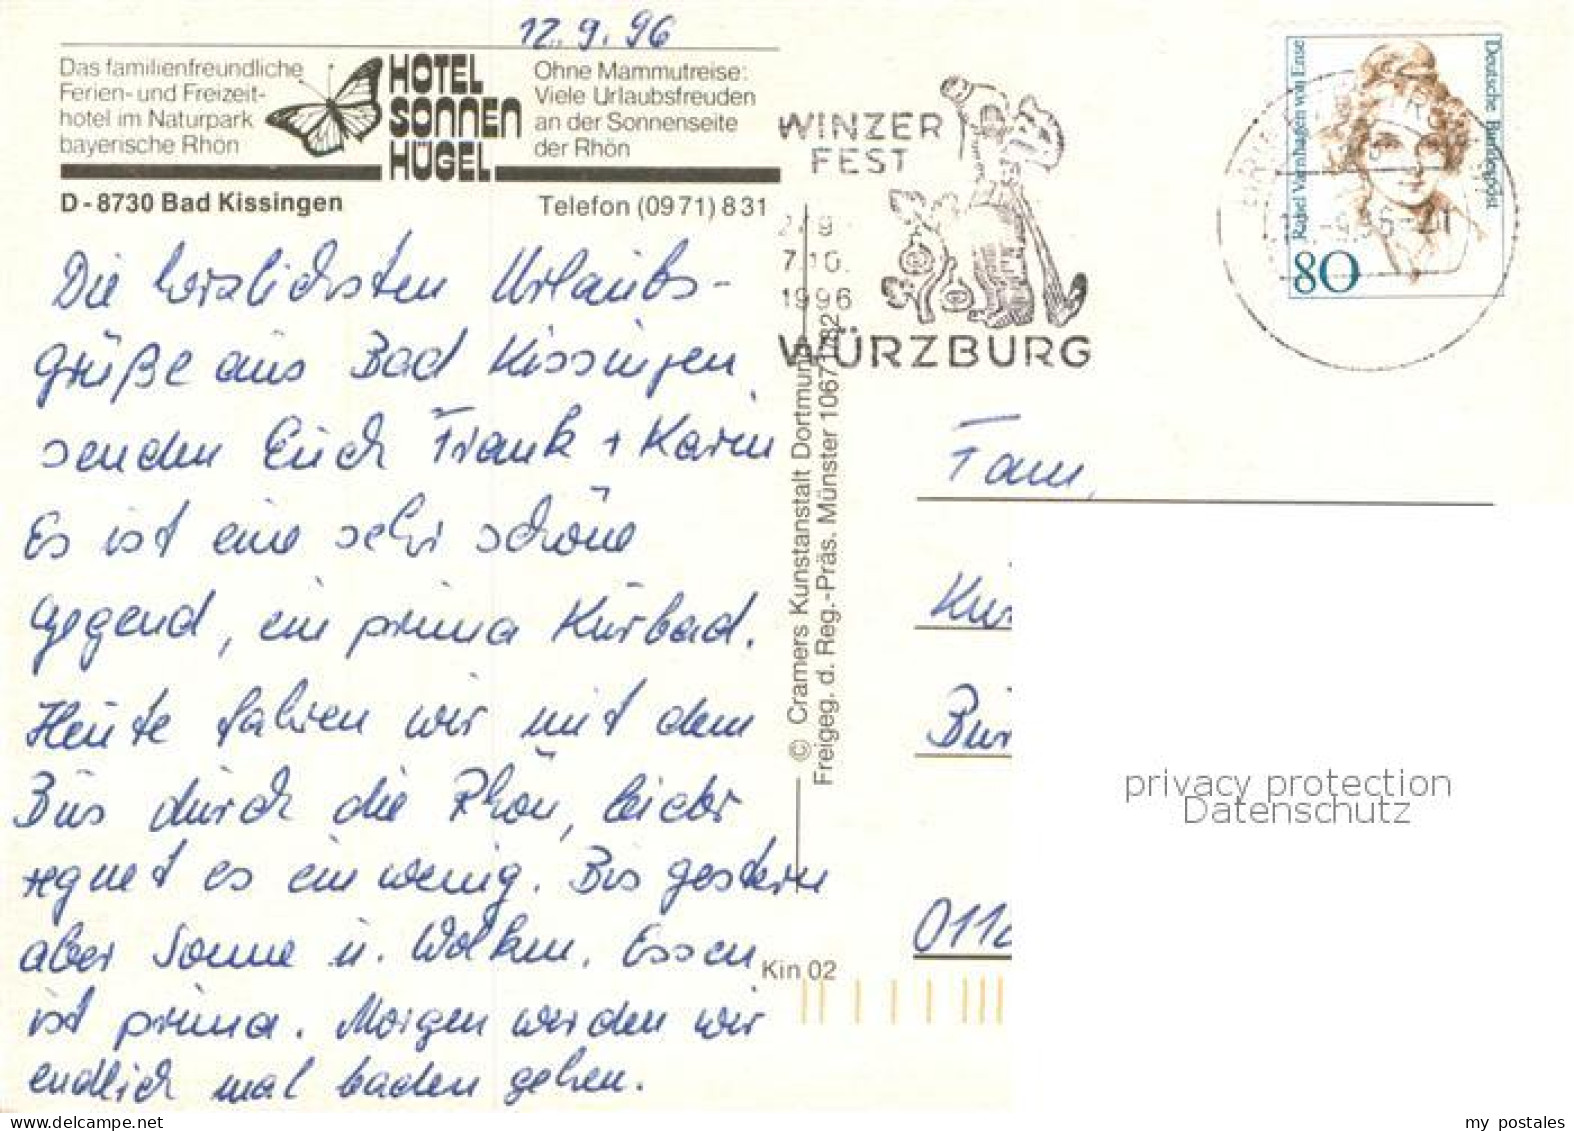 12.9.96
Das familienfreundliche
Ferien- und Freizeit-
hotel im Naturpark
bayerische Rhön
HOTEL
SONNEN
HÜGEL
Ohne Mammutreise:
Viele Urlaubsfreuden
an der Sonnenseite
der Rhön
D-8730 Bad Kissingen
Telefon (0971) 831
Die herzlichsten Urlaubs-
grüße aus Bad Kissingen
senden Euch Frank + Karin
Es ist eine sehr schöne
Gegend, ein prima Kurbad.
Heute fahren wir mit dem
Bus durch die Rhön, leider
regnet es ein wenig. Bis gestern
aber Sonne u. Wolken. Essen
ist prima. Morgen werden wir
endlich mal baden gehen.
© Cramers Kunstanstalt Dortmund
Freigeg. d. Reg.-Präs. Münster 10671/82
Kin 02
WINZER
FEST
7.10.
1996
WÜRZBURG
Rahel Varnhagen von Ense
Deutsche Bundespost
80
Fam.
privacy protection
Datenschutz
my postales